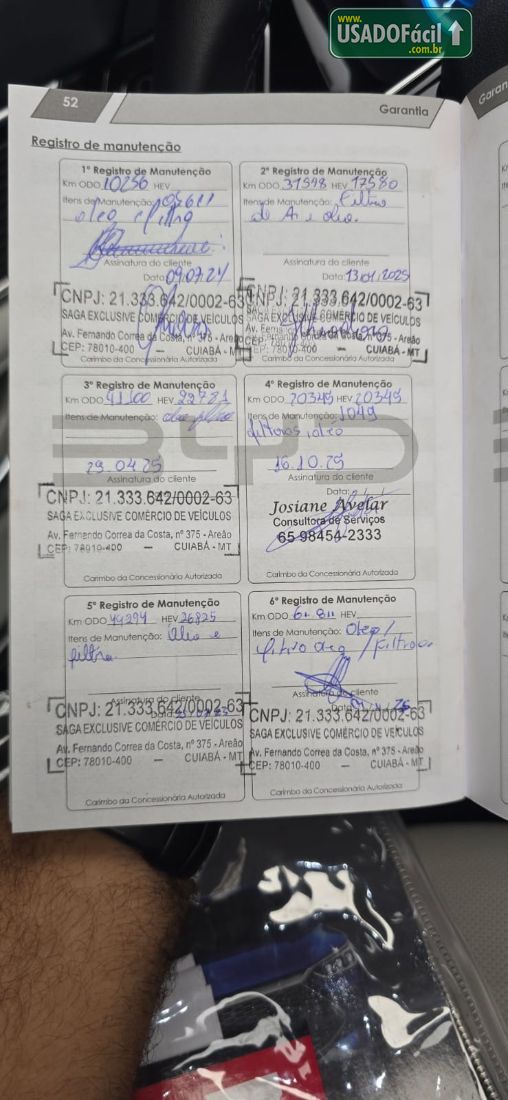 www.
USADOFácil
.com.br
52
Garantia
Registro de manutenção
1º Registro de Manutenção
Km ODO 10256 HEV
Itens de Manutenção: 05611
oleo e filtro
Assinatura do cliente
Data: 09.07.24
CNPJ: 21.333.642/0002-63
SAGA EXCLUSIVE COMÉRCIO DE VEÍCULOS
Av. Fernando Correa da Costa, nº 375 - Areão
CEP: 78010-400 — CUIABÁ - MT
Carimbo da Concessionária Autorizada
2º Registro de Manutenção
Km ODO 31598 HEV 17580
Itens de Manutenção: Filtro
de Ar e oleo.
Assinatura do cliente
Data: 13.01.2025
CNPJ: 21.333.642/0002-63
SAGA EXCLUSIVE COMÉRCIO DE VEÍCULOS
Av. Fernando Correa da Costa, nº 375 - Areão
CEP: 78010-400 — CUIABÁ - MT
Carimbo da Concessionária Autorizada
3º Registro de Manutenção
Km ODO 41100 HEV 22781
Itens de Manutenção: oleo filtro
29.04.25
Assinatura do cliente
CNPJ: 21.333.642/0002-63
SAGA EXCLUSIVE COMÉRCIO DE VEÍCULOS
Av. Fernando Correa da Costa, nº 375 - Areão
CEP: 78010-400 — CUIABÁ - MT
Carimbo da Concessionária Autorizada
4º Registro de Manutenção
Km ODO 20345 HEV 20345
Itens de Manutenção: 1049
filtros
16.10.25
Assinatura do cliente
Data:
Josiane Avelar
Consultora de Serviços
65 98454-2333
Carimbo da Concessionária Autorizada
5º Registro de Manutenção
Km ODO 49294 HEV 26825
Itens de Manutenção: oleo e
filtro.
Assinatura do cliente
Data:
CNPJ: 21.333.642/0002-63
SAGA EXCLUSIVE COMÉRCIO DE VEÍCULOS
Av. Fernando Correa da Costa, nº 375 - Areão
CEP: 78010-400 — CUIABÁ - MT
Carimbo da Concessionária Autorizada
6º Registro de Manutenção
Km ODO HEV
Itens de Manutenção: Oleo/
Assinatura do cliente
Data:
CNPJ: 21.333.642/0002-63
SAGA EXCLUSIVE COMÉRCIO DE VEÍCULOS
Av. Fernando Correa da Costa, nº 375 - Areão
CEP: 78010-400 — CUIABÁ - MT
Carimbo da Concessionária Autorizada
BYD